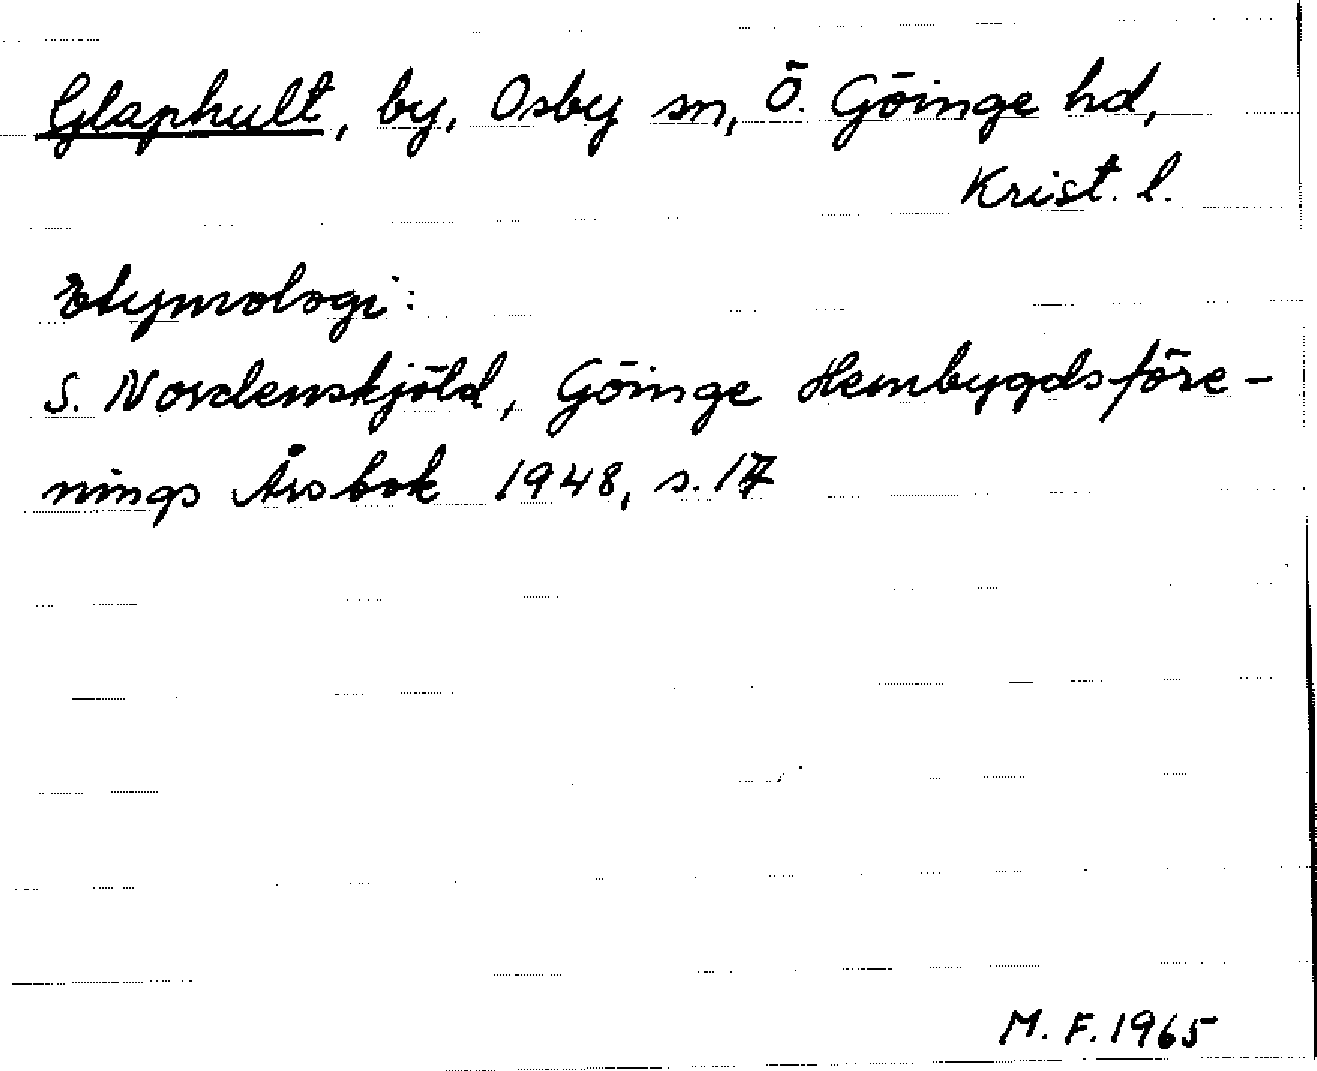 Glaphult, by, Osby sn, Ö. Göinge hd,
Krist. l.
Etymologi:
S. Nordenskjöld, Göinge Hembygdsföre-
nings Årsbok 1948, s. 17
M. F. 1965